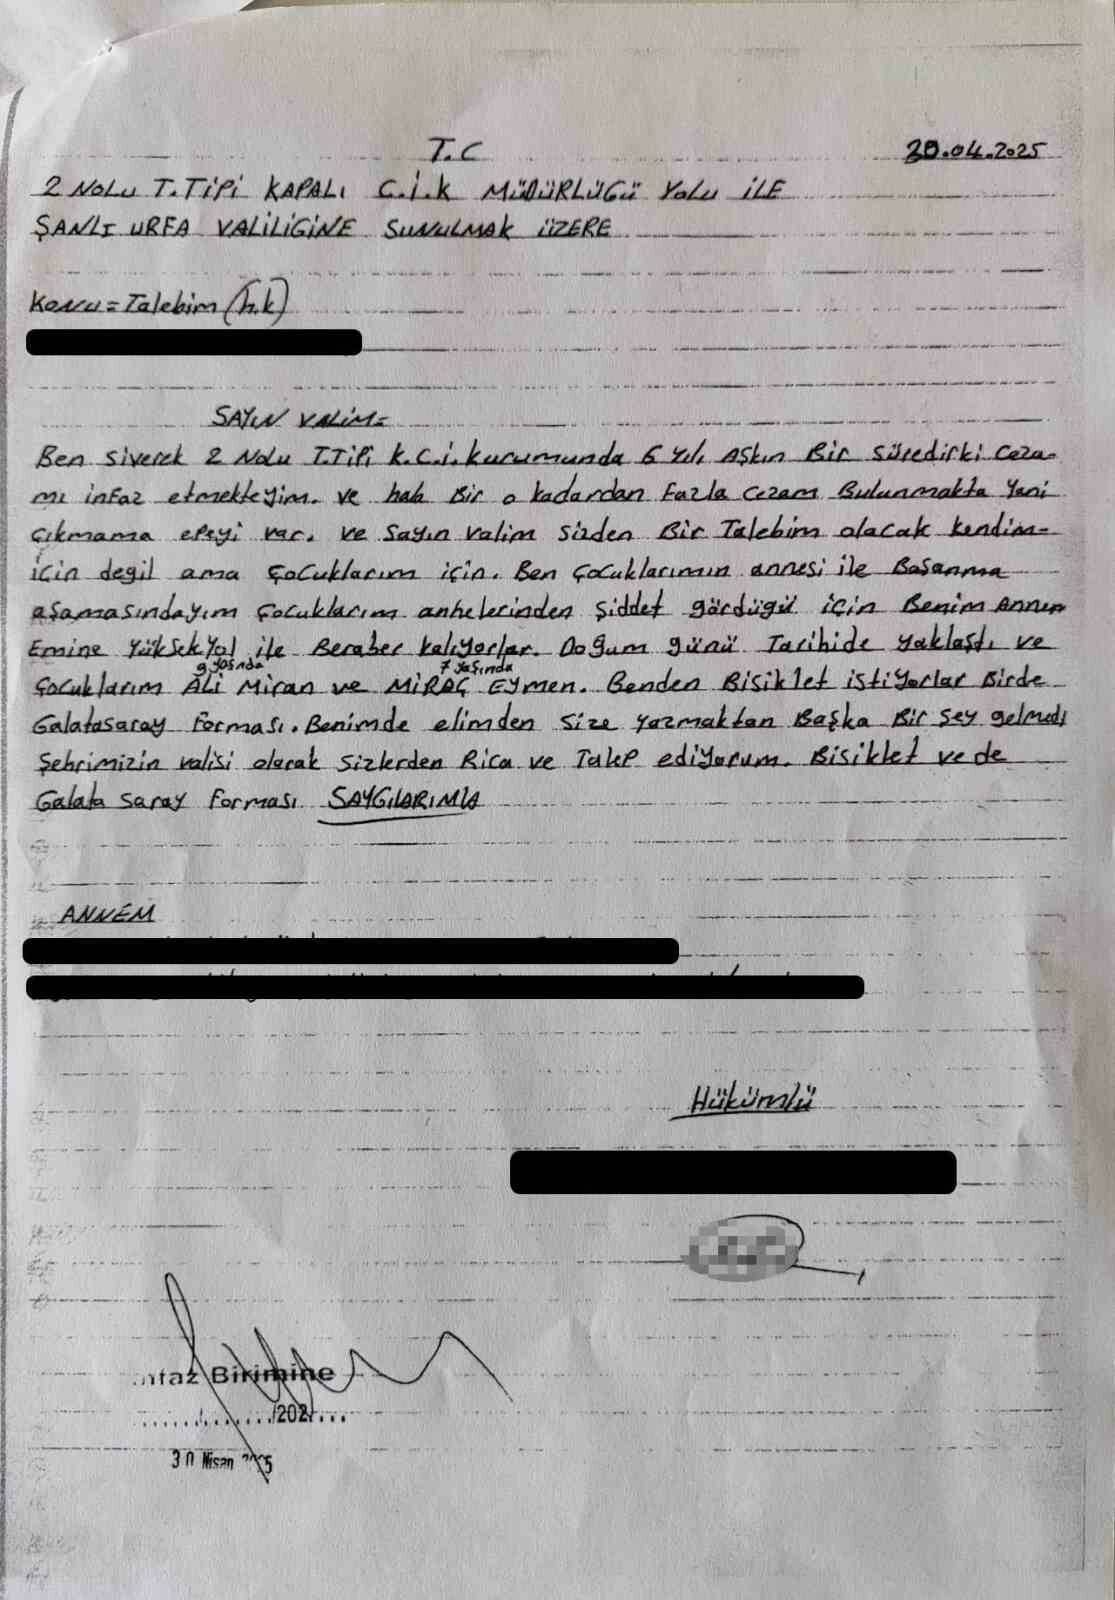 T.C
20.04.2025
2 NOLU T.TİPİ KAPALI C.İ.K MÜDÜRLÜĞÜ YOLU İLE
ŞANLI URFA VALİLİGİNE SUNULMAK ÜZERE
Konu=Talebim (h.k)
SAYIN VALİM=
Ben siverek 2 Nolu T.Tipi K.C.i.kurumunda 6 yılı Aşkın Bir süredirki ceza-
mı infaz etmekteyim. ve hala Bir o kadardan fazla cezam Bulunmakta yani
çıkmama epeyi var. ve sayın valim sizden Bir Talebim olacak kendim-
için degil ama çocuklarım için. Ben çocuklarımın annesi ile Boşanma
aşamasındayım çocuklarım annelerinden şiddet gördügü için Benim Annem
Emine Yüksekyol ile Beraber kalıyorlar. Doğum günü Tarihide yaklaştı ve
9 yaşında 7 yaşında
çocuklarım Ali Miran ve MİRAÇ EYmen. Benden Bisiklet istiyorlar Birde
Galatasaray forması. Benimde elimden size yazmaktan Başka Bir şey gelmedi
şehrimizin valisi olarak sizlerden Rica ve Talep ediyorum. Bisiklet ve de
Galata saray forması SAYGILARIMLA
ANNEM
Hükümlü
nfaz Birimine
/202
30 Nisan